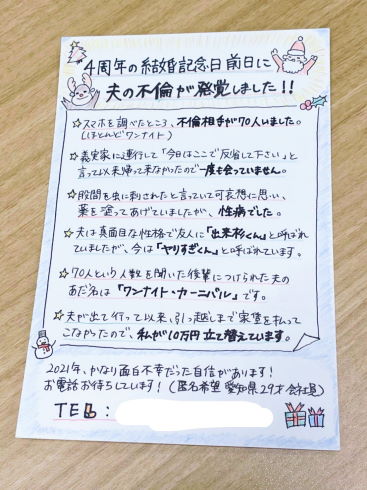 4周年の結婚記念日前日に
夫の不倫が発覚しました!!
☆スマホを調べたところ、不倫相手が70人いました。
(ほとんどワンナイト)
☆義実家に連行して「今日はここで反省して下さい」と
言って以来帰って来なかったので一度も会っていません。
☆股間を虫に刺されたと言っていて可哀想に思い、
薬を塗ってあげていましたが、性病でした。
☆夫は真面目な性格で友人に「出来杉くん」と呼ばれ
ていましたが、今は「ヤりすぎくん」と呼ばれています。
☆70人という人数を聞いた後輩につけられた夫の
あだ名は「ワンナイト・カーニバル」です。
☆夫が出て行って以来、引っ越しまで家賃を払って
こなかったので、私が10万円立て替えています。
2021年、かなり面白不幸だった自信があります!
お電話お待ちしています!(匿名希望 愛知県29才会社員)
TEL: